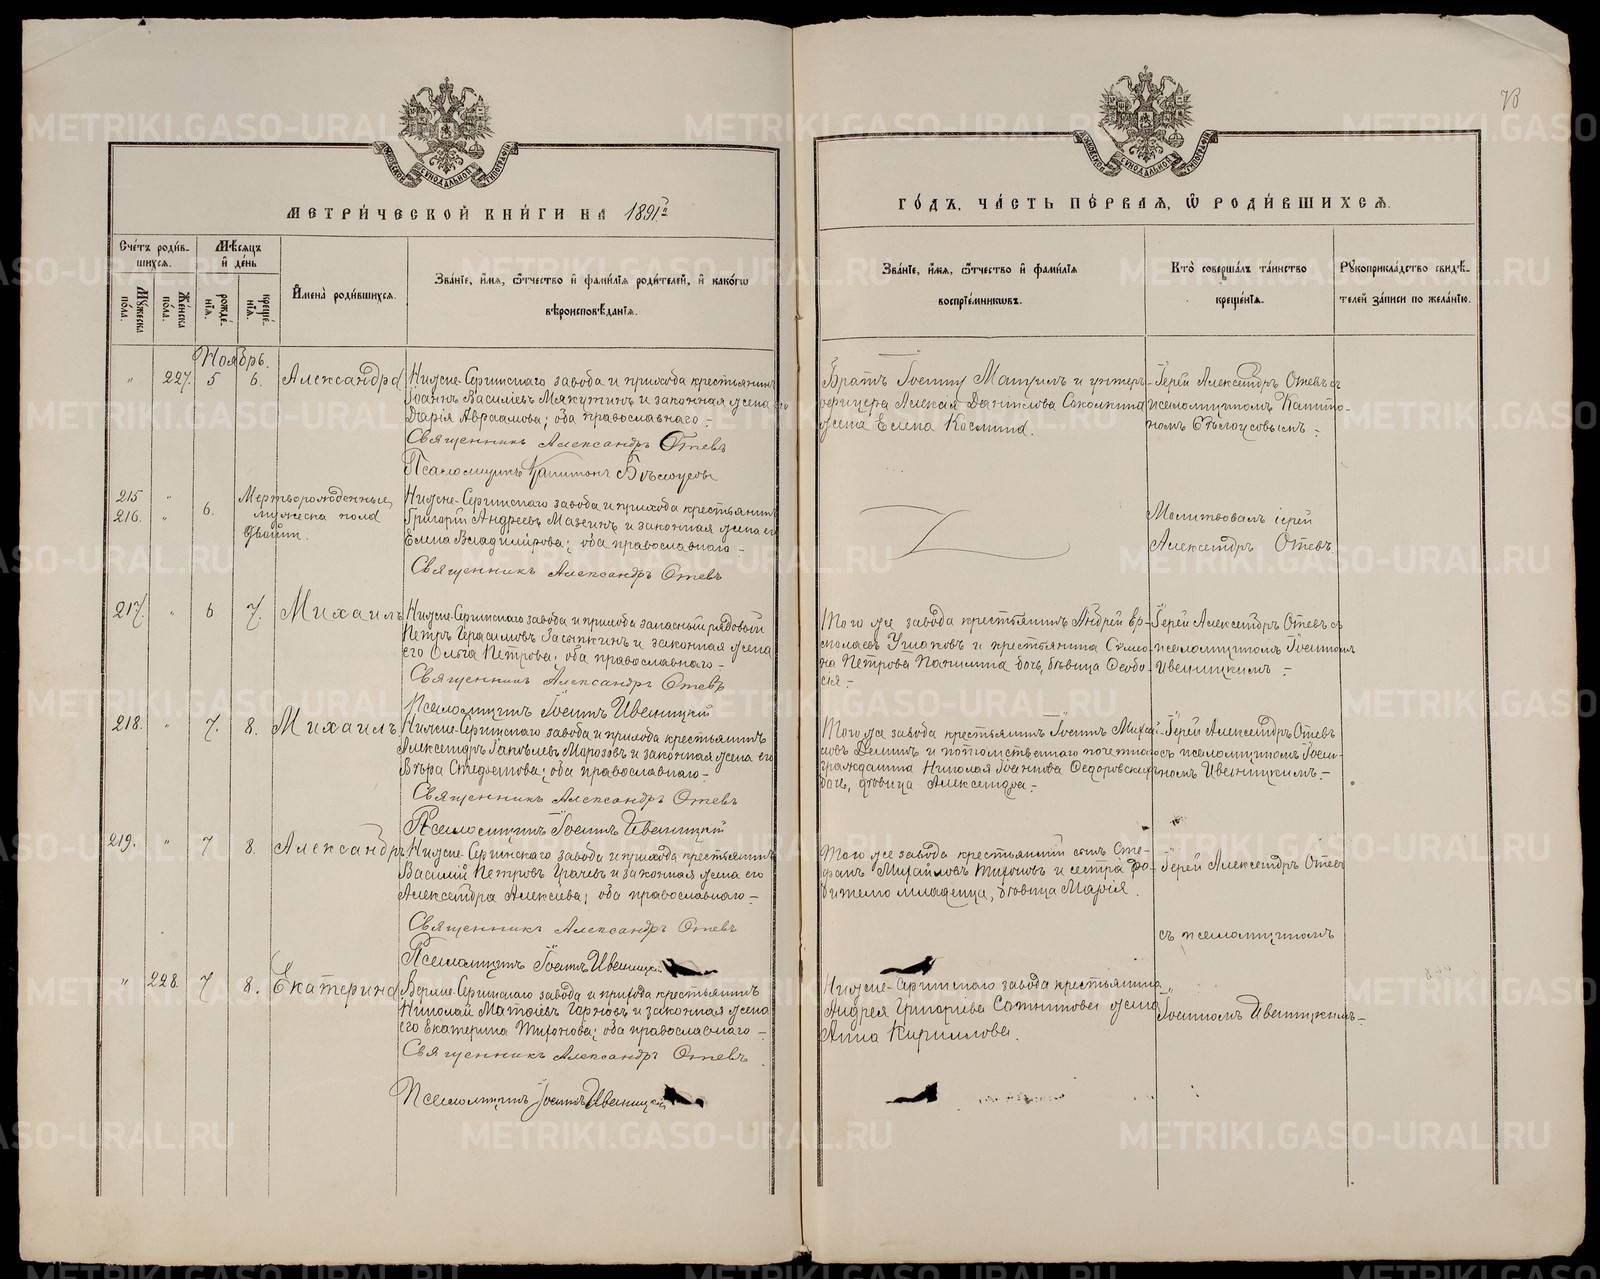 МЕТРИ́ЧЕСКОЙ КНИ́ГИ НА 1891 г.
Сче́тъ роди́вшихся.
Му́жеска по́ла.
Же́нска по́ла.
Мѣ́сяцъ и҆ де́нь
рожде́нїѧ.
креще́нїѧ.
И҆мена̀ роди́вшихсѧ.
Зва́нїе, и҆́мѧ, ѻ҆́тчество и҆ фами́лїѧ роди́телей, и҆ како́гѡ
вѣроисповѣ́данїѧ.
Ноябрь.
" 227. 5 6. Александра
Нижне-Сергинскаго завода и прихода крестьянинъ
Іоаннъ Василіевъ Мякутинъ и законная жена его
Дарія Авраамова; оба православнаго.-
Священникъ Александръ Отевъ
Псаломщикъ Капитонъ Бѣлоусовъ
215 "
216. " 6.
Мертворожденные
мужеска пола
двойни.
Нижне-Сергинскаго завода и прихода крестьянинъ
Григорій Андреевъ Мазинъ и законная жена его
Елена Владимірова; оба православнаго.-
Священникъ Александръ Отевъ
217. " 6 7. Михаилъ
Нижне-Сергинскаго завода и прихода запасный рядовой
Петръ Герасимовъ Засыпкинъ и законная жена
его Ольга Петрова; оба православнаго.-
Священникъ Александръ Отевъ
Псаломщикъ Іоаннъ Ивеницкій
218. " 7. 8. Михаилъ
Нижне-Сергинскаго завода и прихода крестьянинъ
Александръ Іаковлевъ Морозовъ и законная жена его
Вѣра Стефанова; оба православнаго.-
Священникъ Александръ Отевъ
Псаломщикъ Іоаннъ Ивеницкій
219. " 7 8. Александръ
Нижне-Сергинскаго завода и прихода крестьянинъ
Василій Петровъ и законная жена его
Александра Алексіева; оба православнаго.-
Священникъ Александръ Отевъ
Псаломщикъ Іоаннъ Ивеницкій
" 228. 7 8. Екатерина
Верхне-Сергинскаго завода и прихода крестьянинъ
Николай Матѳіевъ и законная жена
его Екатерина Тихонова; оба православнаго.-
Священникъ Александръ Отевъ
Псаломщикъ Іоаннъ Ивеницкій
ГО́ДЪ, ЧА́СТЬ ПЕ́РВАѦ, Ѡ҆ РОДИ́ВШИХСѦ.
Зва́нїе, и҆́мѧ, ѻ҆́тчество и҆ фами́лїѧ
воспрїе́мниковъ.
Кто̀ соверша́лъ та́инство
креще́нїѧ.
Рꙋкоприкла́дство свидѣ́телей за́писи по жела́нїю.
Братъ Іоанну Матримъ и унтеръ-
офицера Алексія Данилова Соколкина
жена Елена Космина.
Іерей Александръ Отевъ съ
псаломщикомъ Капито-
номъ Бѣлоусовымъ.-
Молитвовалъ іерей
Александръ Отевъ.
Того же завода крестьянинъ Андрей Ер-
молаевъ Ушаковъ и крестьянина Симео-
на Петрова Паншина дочь, дѣвица Ѳеодо-
сія.-
Іерей Александръ Отевъ съ
псаломщикомъ Іоанномъ
Ивеницкимъ.-
Того же завода крестьянинъ Іоаннъ Михаи-
ловъ и потомственнаго почетнаго
гражданина Николая Іоаннова Ѳедоровскаго
дочь, дѣвица Александра.-
Іерей Александръ Отевъ
съ псаломщикомъ Іоан-
номъ Ивеницкимъ.-
Того же завода крестьянскій сынъ Сте-
фанъ Михайловъ Тихоновъ и сестра ро-
дителю младенца, дѣвица Марія.
Іерей Александръ Отевъ
съ псаломщикомъ
Нижне-Сергинскаго завода крестьянина
Андрея Григоріева жена
Анна Кириллова.
Іоанномъ Ивеницкимъ.-
METRIKI.GASO-URAL.RU